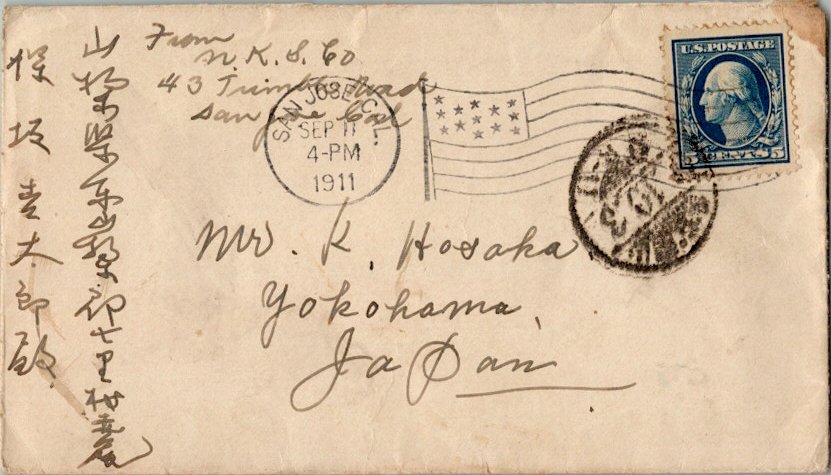 From
N. K. S. Co
43 Trimble Road
San Jose Cal
SAN JOSE, CAL.
SEP 11
4-PM
1911
U.S. POSTAGE
5 CENTS 5
Mr. K. Hosaka
Yokohama,
Japan
山梨縣東山梨郡七里村
保坂吉太郎殿